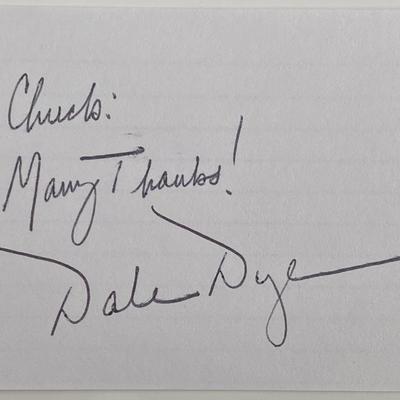 Chuck:
Many Thanks!
Dale Dye